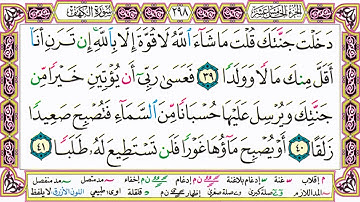 سورة الكهف ٢٩٨ الجزء الخامس عشر
دَخَلْتَ جَنَّتَكَ قُلْتَ مَا شَآءَ ٱللَّهُ لَا قُوَّةَ إِلَّا بِٱللَّهِ إِن تَرَنِ أَنَا۠
أَقَلَّ مِنكَ مَالًا وَوَلَدًا ٣٩ فَعَسَىٰ رَبِّىٓ أَن يُؤْتِيَنِ خَيْرًا مِّن
جَنَّتِكَ وَيُرْسِلَ عَلَيْهَا حُسْبَانًا مِّنَ ٱلسَّمَآءِ فَتُصْبِحَ صَعِيدًا
زَلَقًا ٤٠ أَوْ يُصْبِحَ مَآؤُهَا غَوْرًا فَلَن تَسْتَطِيعَ لَهُۥ طَلَبًا ٤١